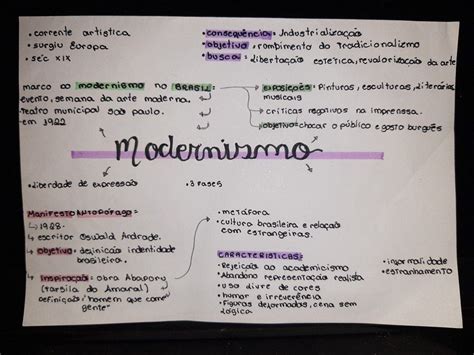 • corrente artística
• surgiu Europa
• séc XIX
• consequência: Industrialização
• objetivo: rompimento do Tradicionalismo
• busca: libertação estética, revalorização da arte
marco do modernismo no BRASIL:
evento, semana da arte moderna.
Teatro municipal são paulo.
em 1922
exposições: Pinturas, esculturas, literários
musicais
críticas negativas na imprenssa.
objetivo: chocar o público e gosto burguês
Modernismo
• liberdade de expressão
• 3 fases
Manifesto Antopófago:
1928.
escritor Oswald Andrade.
objetivo: definição indentidade
brasileira.
Inspiração: obra Abapory
(tarsila do Amaral)
Definição: "homem que come
gente"
• metáfora
• cultura brasileira e relação
com estrangeiras.
CARACTERISTICAS:
• Rejeição ao academicismo
• Abandono representação realista
• uso livre de cores
• humor e irreverência
• Figuras deformadas, cena sem
lógica
• informalidade
• estranhamento